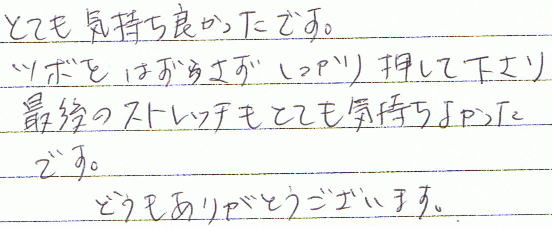 とても気持ち良かったです。
ツボをはずさずしっかり押して下さり
最後のストレッチもとても気持ちよかった
です。
どうもありがとうございます。